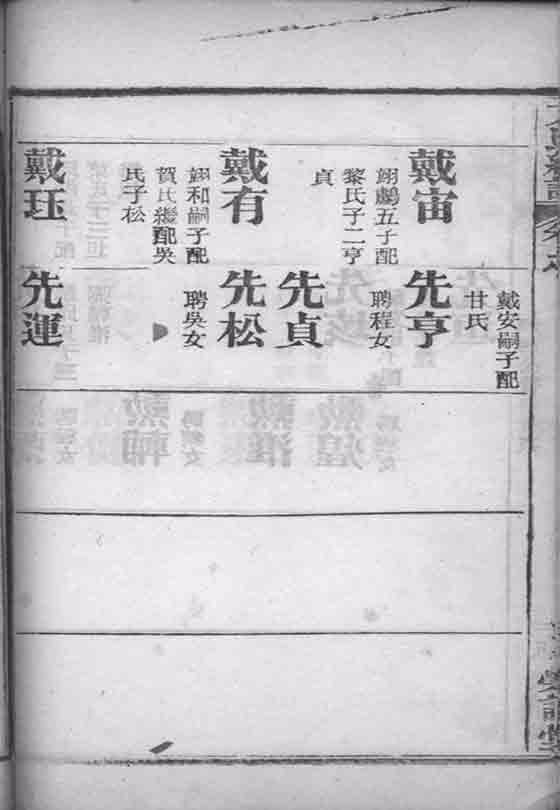 戴宙
翊五子配
黎氏子二亨
貞
戴有
翊和嗣子配
賀氏繼配吳
氏子松
戴珏
戴安嗣子配
甘氏
先亨
聘程女
先貞
先松
聘吳女
先運